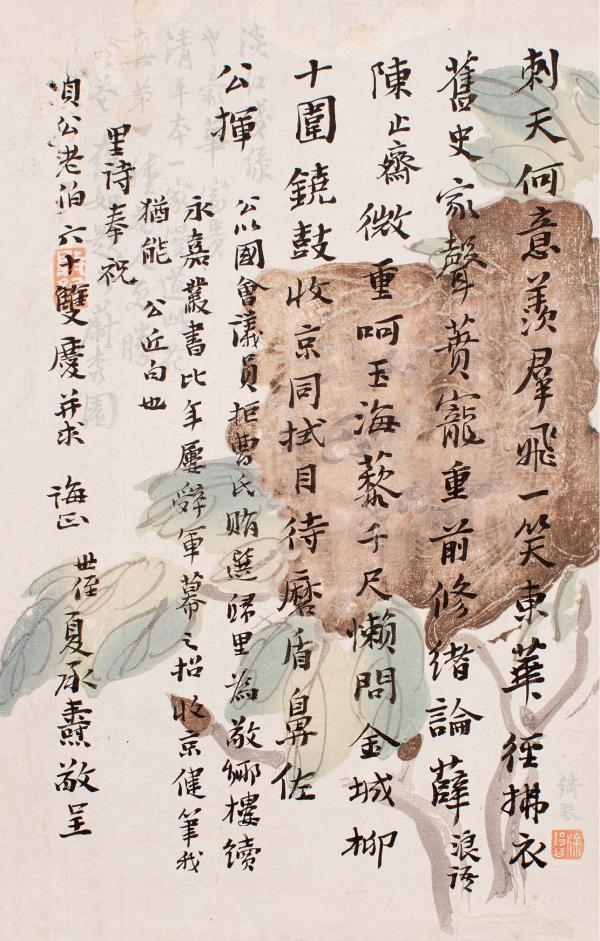 刺天何意羨羣飛一笑東華徑拂衣
舊史家聲寵重前修緒論薛浪語
陳止齋微重呵玉海藜千尺懶問金城柳
十圍鐃鼓收京同拭目待磨盾鼻佐
公揮
公以國會議員拒曹氏賄選歸里為敬鄉樓續
永嘉叢書比年屢辭軍幕之招收京健筆我
猶能 公近句也
里詩奉祝
公老伯六十雙慶并求 誨正 世侄夏承燾敬呈